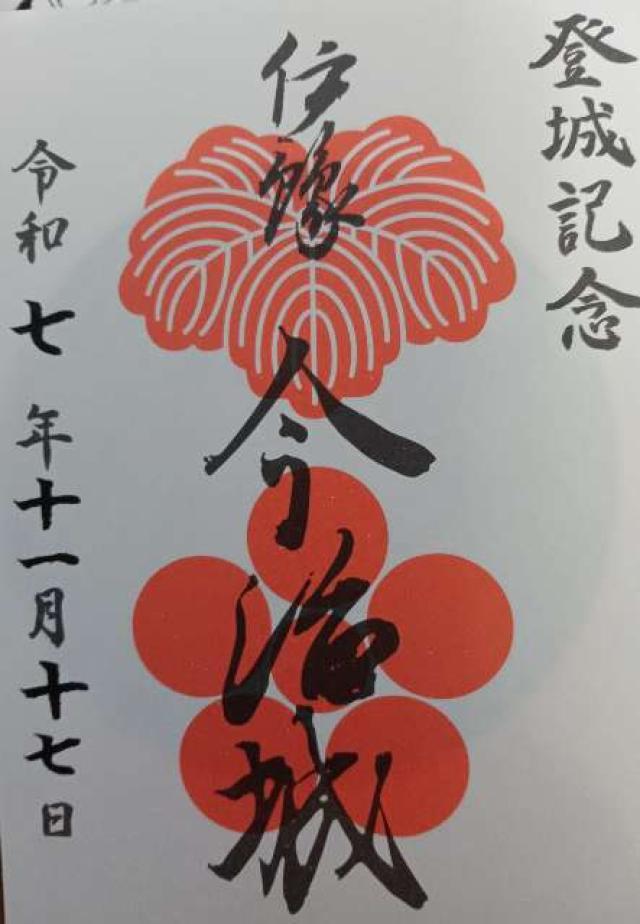 登城記念
伊豫
今治城
令和七年十一月十七日